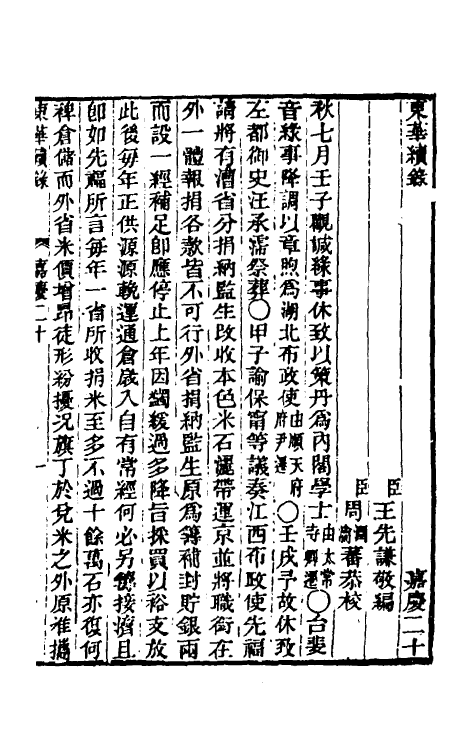 東華續錄 嘉慶二十
臣王先謙敬編
臣周蕃恭校
秋七月壬子觀諴緣事休致以策丹爲內閣學士由太常寺卿遷〇台斐
音緣事降調以章煦爲湖北布政使由順天府府尹遷〇壬戌予故休致
左都御史汪承霈祭葬〇甲子諭保甯等議奏江西布政使先福
請將有漕省分捐納監生改收本色米石灑帶運京並將職銜在
外一體報捐各款皆不可行外省捐納監生原爲籌補封貯銀兩
而設一經補足卽應停止上年因蠲緩過多降旨採買以裕支放
此後每年正供源源輓運通倉歲入自有常經何必另籌接濟且
卽如先福所言每年一省所收捐米至多不過十餘萬石亦復何
裨倉儲而外省米價增昂徒形紛擾況旗丁於兌米之外原准攜
東華續錄 嘉慶二十 一